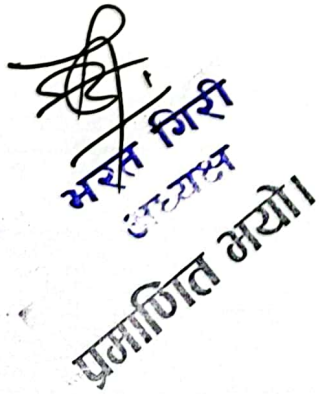 भरत गिरी
अध्यक्ष
प्रमाणित भयो।